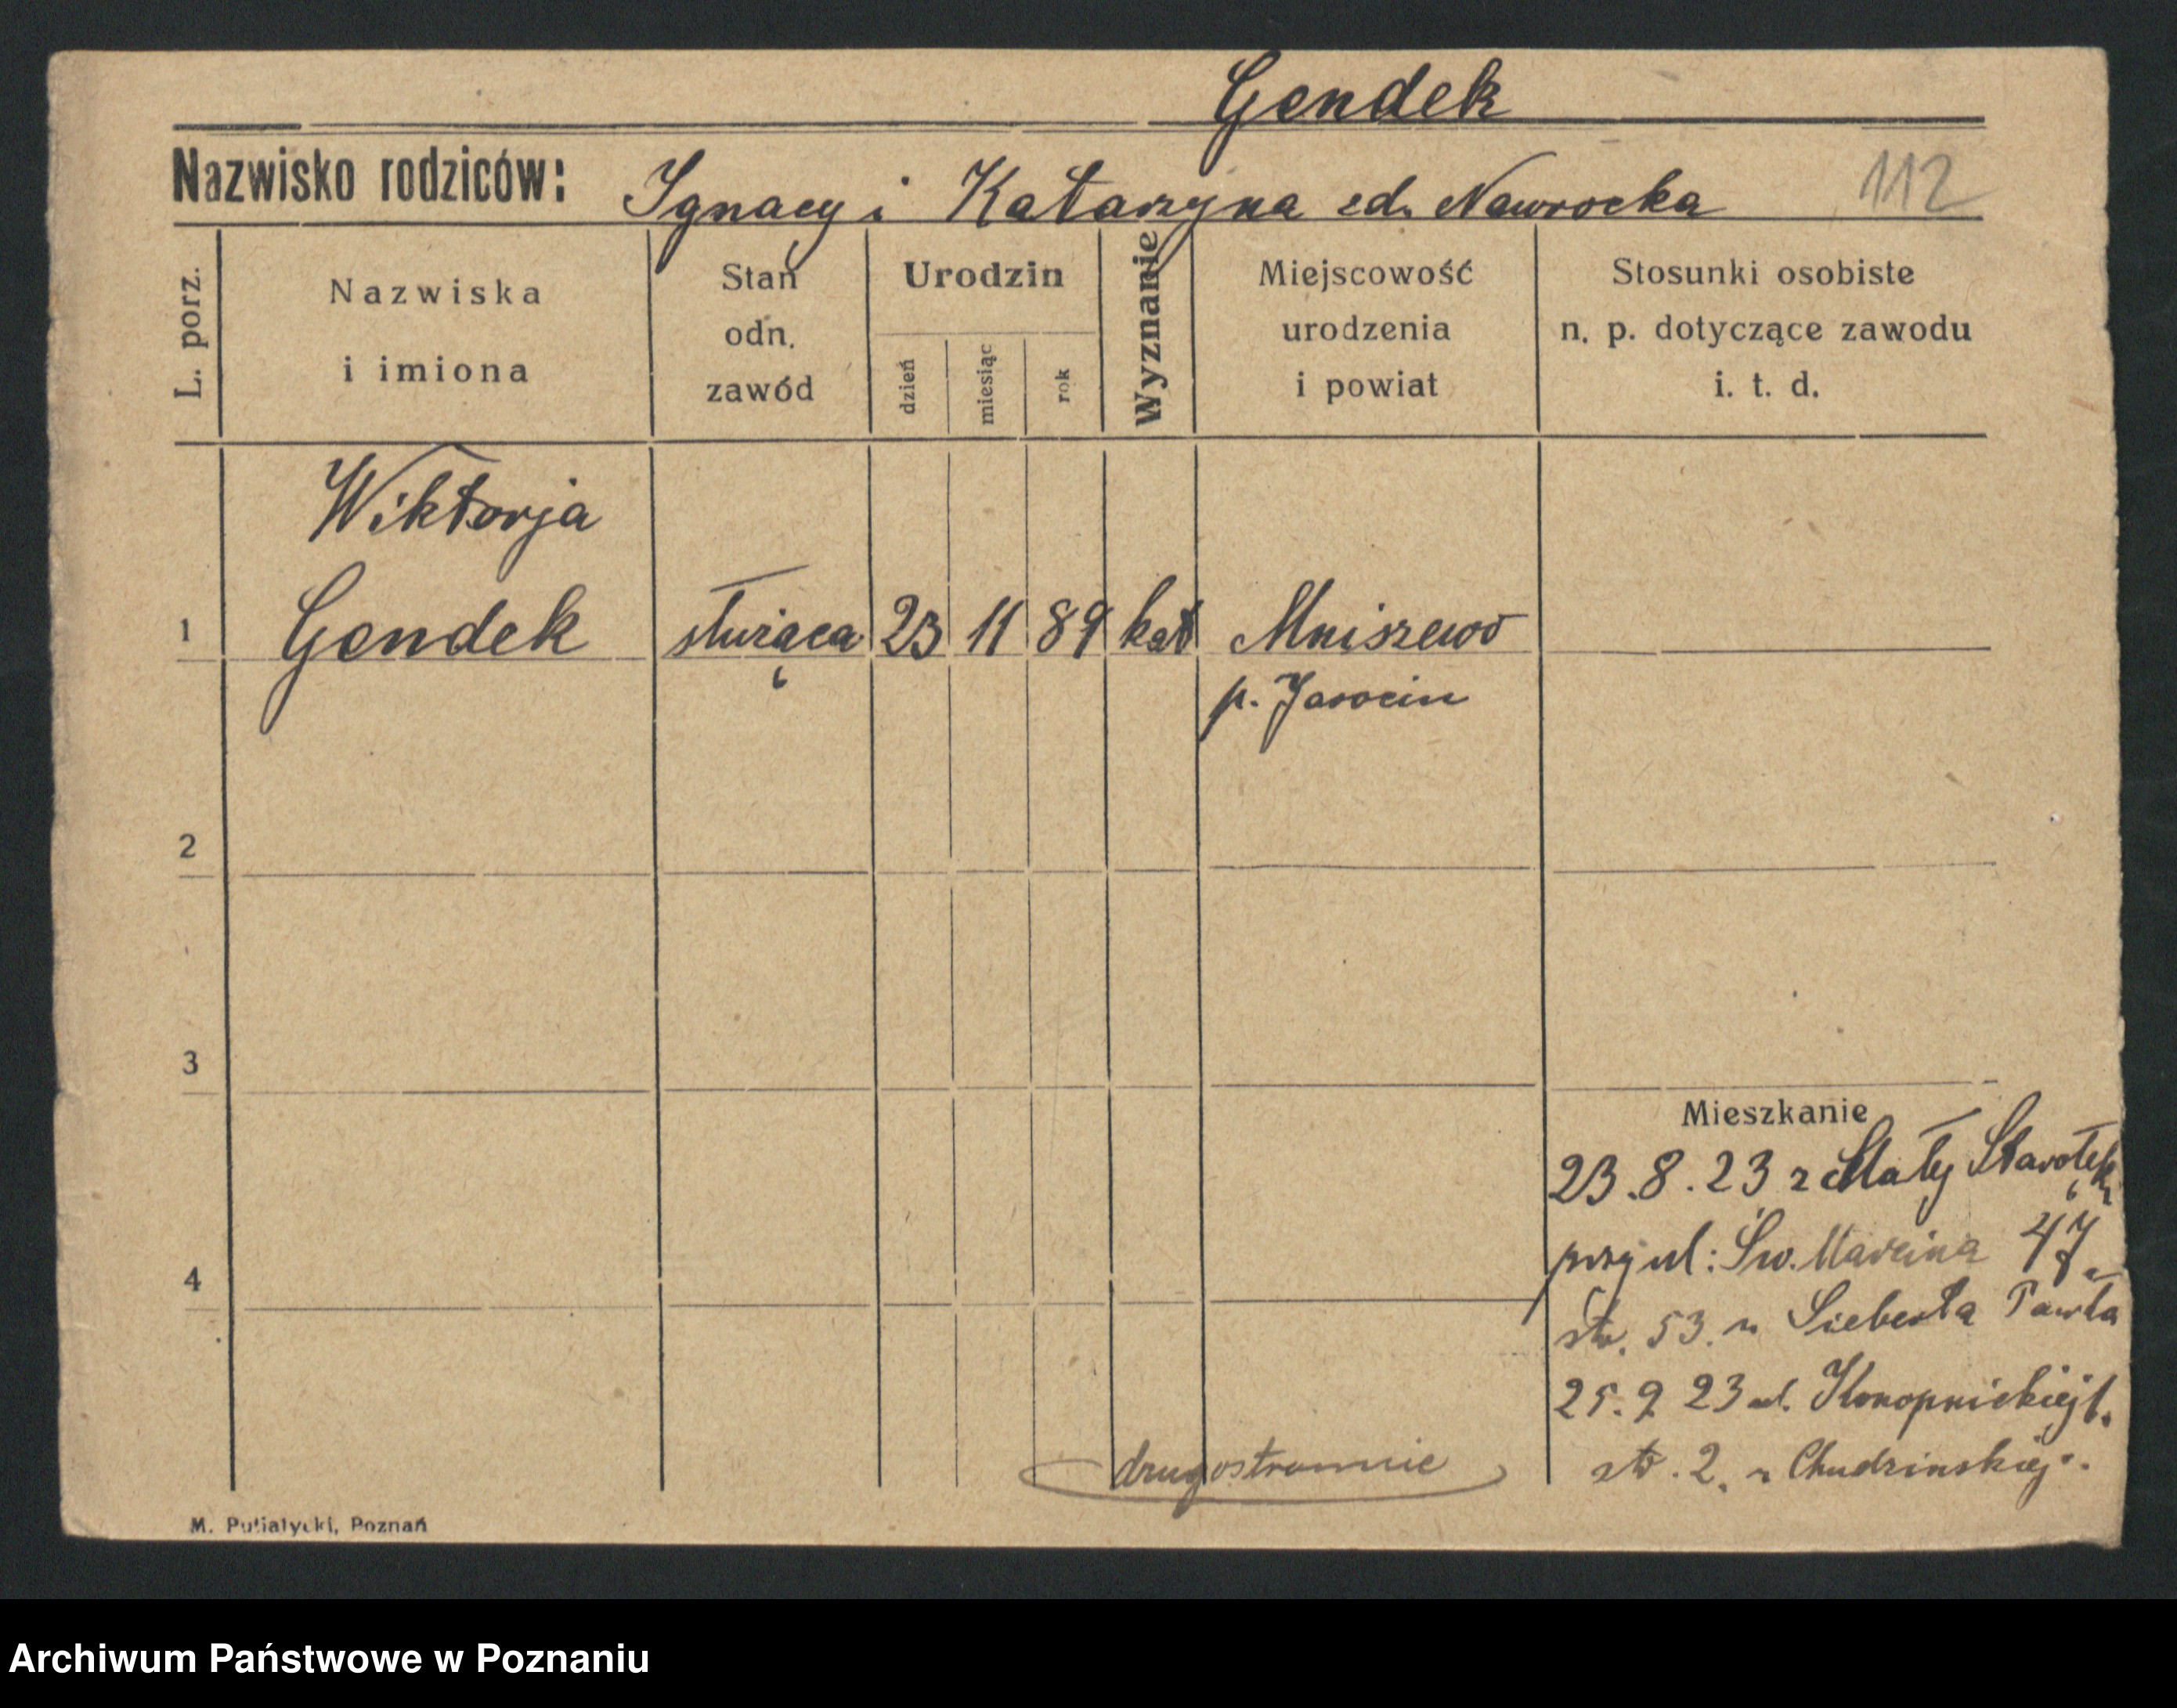 Gendek
Nazwisko rodziców: Ignacy i Katarzyna zd. Nawrocka 112
L. porz.
Nazwiska i imiona
Stan odn. zawód
Urodzin
dzień miesiąc rok
Wyznanie
Miejscowość urodzenia i powiat
Stosunki osobiste n. p. dotyczące zawodu i. t. d.
Wiktorja
1 Gendek służąca 23 11 89 kat Mniszewo
p. Jarocin
2
3
Mieszkanie
23.8.23 z Mały Starołęki
przy ul: Św. Marcina 47
str. 53. u Sieberta Pawła
4
25.9 23 ul. Konopnickiej 1.
str. 2. u Chudzinskiej.
drugostronnie
M. Putiatycki, Poznań
Archiwum Państwowe w Poznaniu